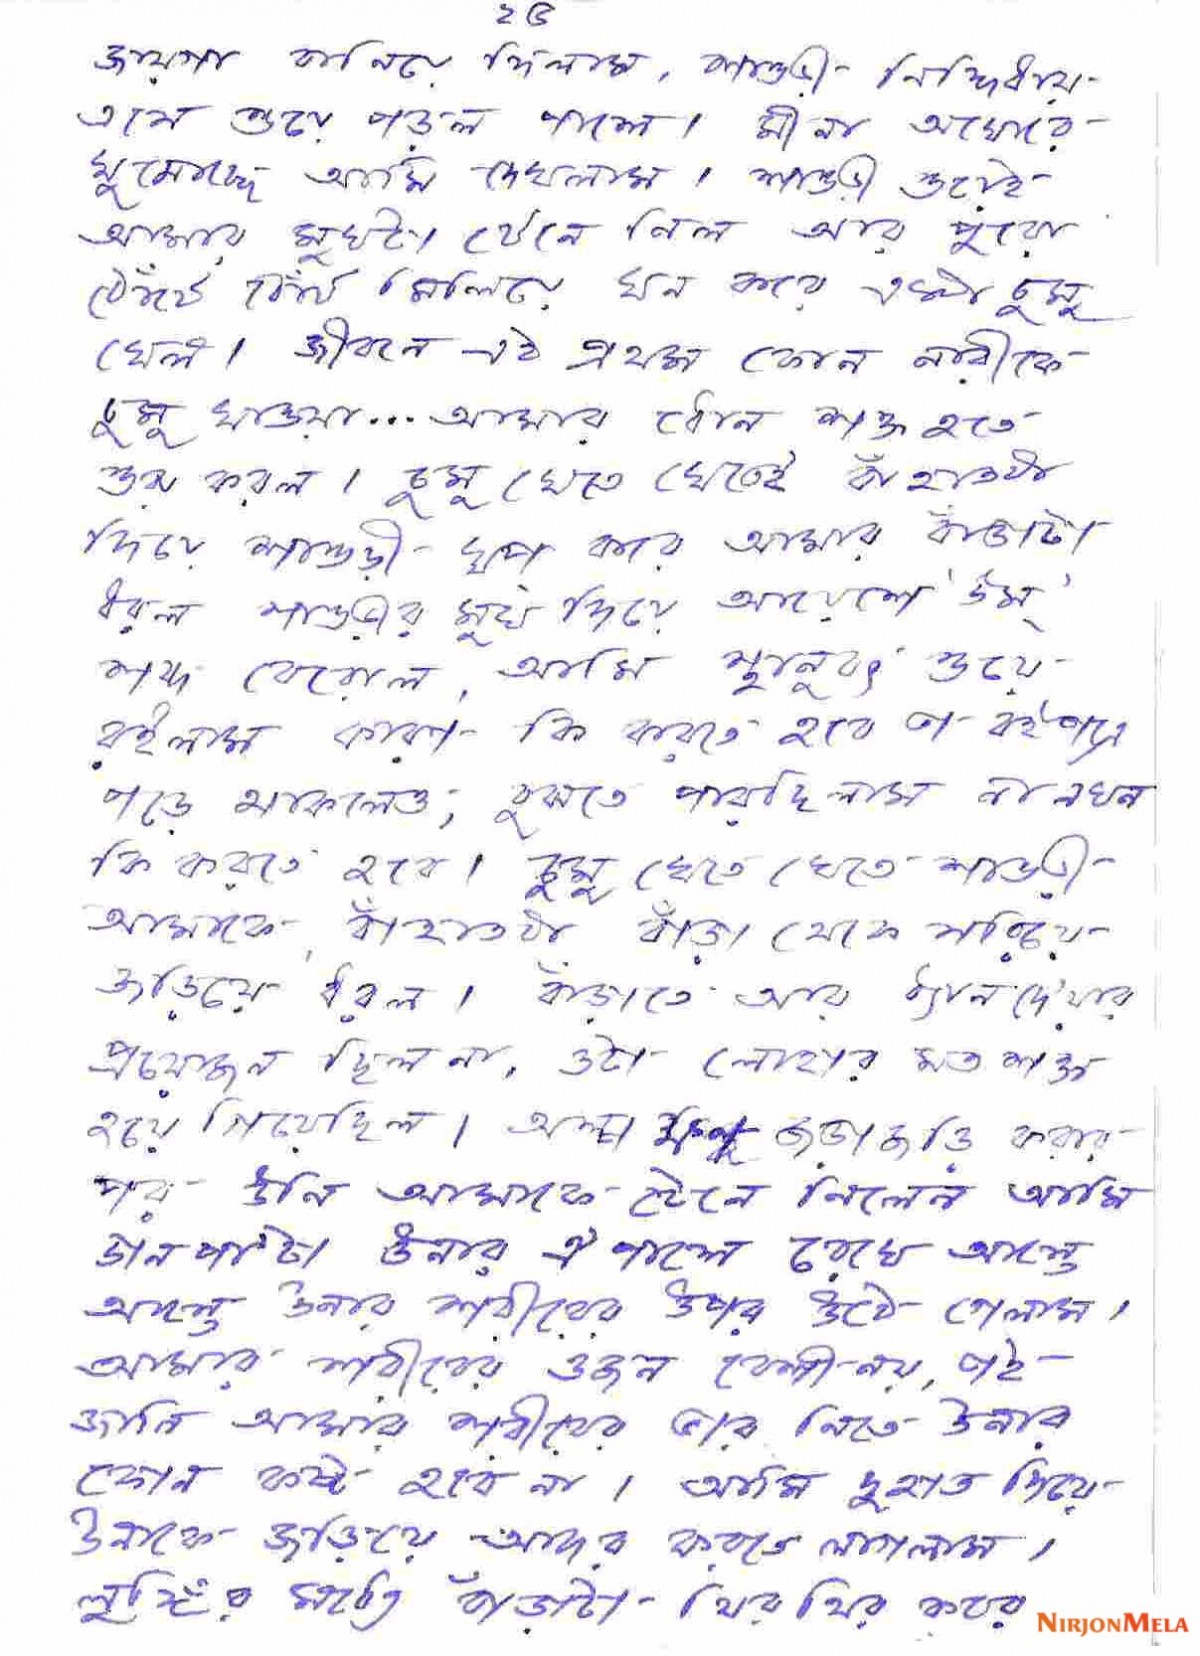 ২৫
জায়গা বানিয়ে দিলাম, শাশুড়ী নির্দ্বিধায়
এসে শুয়ে পড়ল পাশে। মীনা অঘোরে
ঘুমোচ্ছে আমি দেখলাম। শাশুড়ী শুয়েই
আমার মুখটা টেনে নিল আর পুরো
ঠোঁটে ঠোঁট মিলিয়ে ঘন করে একটা চুমু
খেল। জীবনে এই প্রথম কোন নারীকে
চুমু খাওয়া... আমার ধোন শক্ত হতে
শুরু করল। চুমু খেতে খেতেই বাঁ হাতটা
দিয়ে শাশুড়ী খপ করে আমার বাঁড়াটা
ধরল শাশুড়ীর মুখ দিয়ে আয়েশে 'উম্'
শব্দ বেরোল, আমি স্থানুবৎ শুয়ে
রইলাম কারণ কি করতে হবে তা বইপত্রে
পড়ে থাকলেও, বুঝতে পারছিলাম না এখন
কি করতে হবে। চুমু খেতে খেতে শাশুড়ী
আমাকে, বাঁ হাতটা বাঁড়া থেকে সরিয়ে
জড়িয়ে ধরল। বাঁড়াতে আর ধ্যান দেয়ার
প্রয়োজন ছিল না, ওটা লোহার মত শক্ত
হয়ে গিয়েছিল। অল্প জড়াজড়ি করার
পর উনি আমাকে টেনে নিলেন আমি
ডান পা টা উনার ঐ পাশে রেখে আস্তে
আস্তে উনার শরীরের উপর উঠে গেলাম।
আমার শরীরের ওজন বেশী নয়, তাই
জানি আমার শরীরের ভার নিতে উনার
কোন কষ্ট হবে না। আমি দুহাত দিয়ে
উনাকে জড়িয়ে আদর করতে লাগলাম।
লুঙ্গির মধ্যে বাঁড়াটা থির থির করে
NIRJONMELA